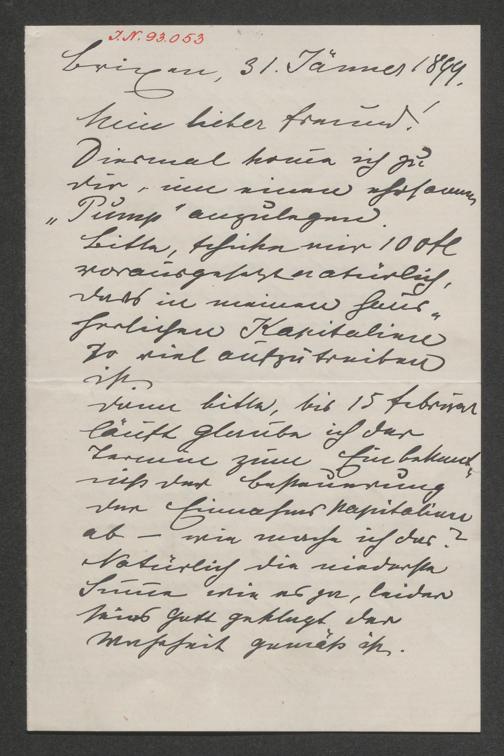 I.N. 93.053
Brixen, 31. Jänner 1899.
Mein lieber Freund!
Diesmal komme ich zu
dir, um einen
„Pump" anzulegen.
Bitte, schicke mir 100 fl
vorausgesetzt natürlich,
dass in meinen Haus-
herrlichen Kapitalien
so viel aufzutreiben
ist.
dann bitte, bis 15 Februar
läuft glaube ich der
Termin zum Einbekennt-
niß der Besteuerung
der Kapitalien
ab – wie mache ich das?
Natürlich die niederste
Summe wie es ja, leider
seis Gott geklagt der
Wahrheit gemäß ist.